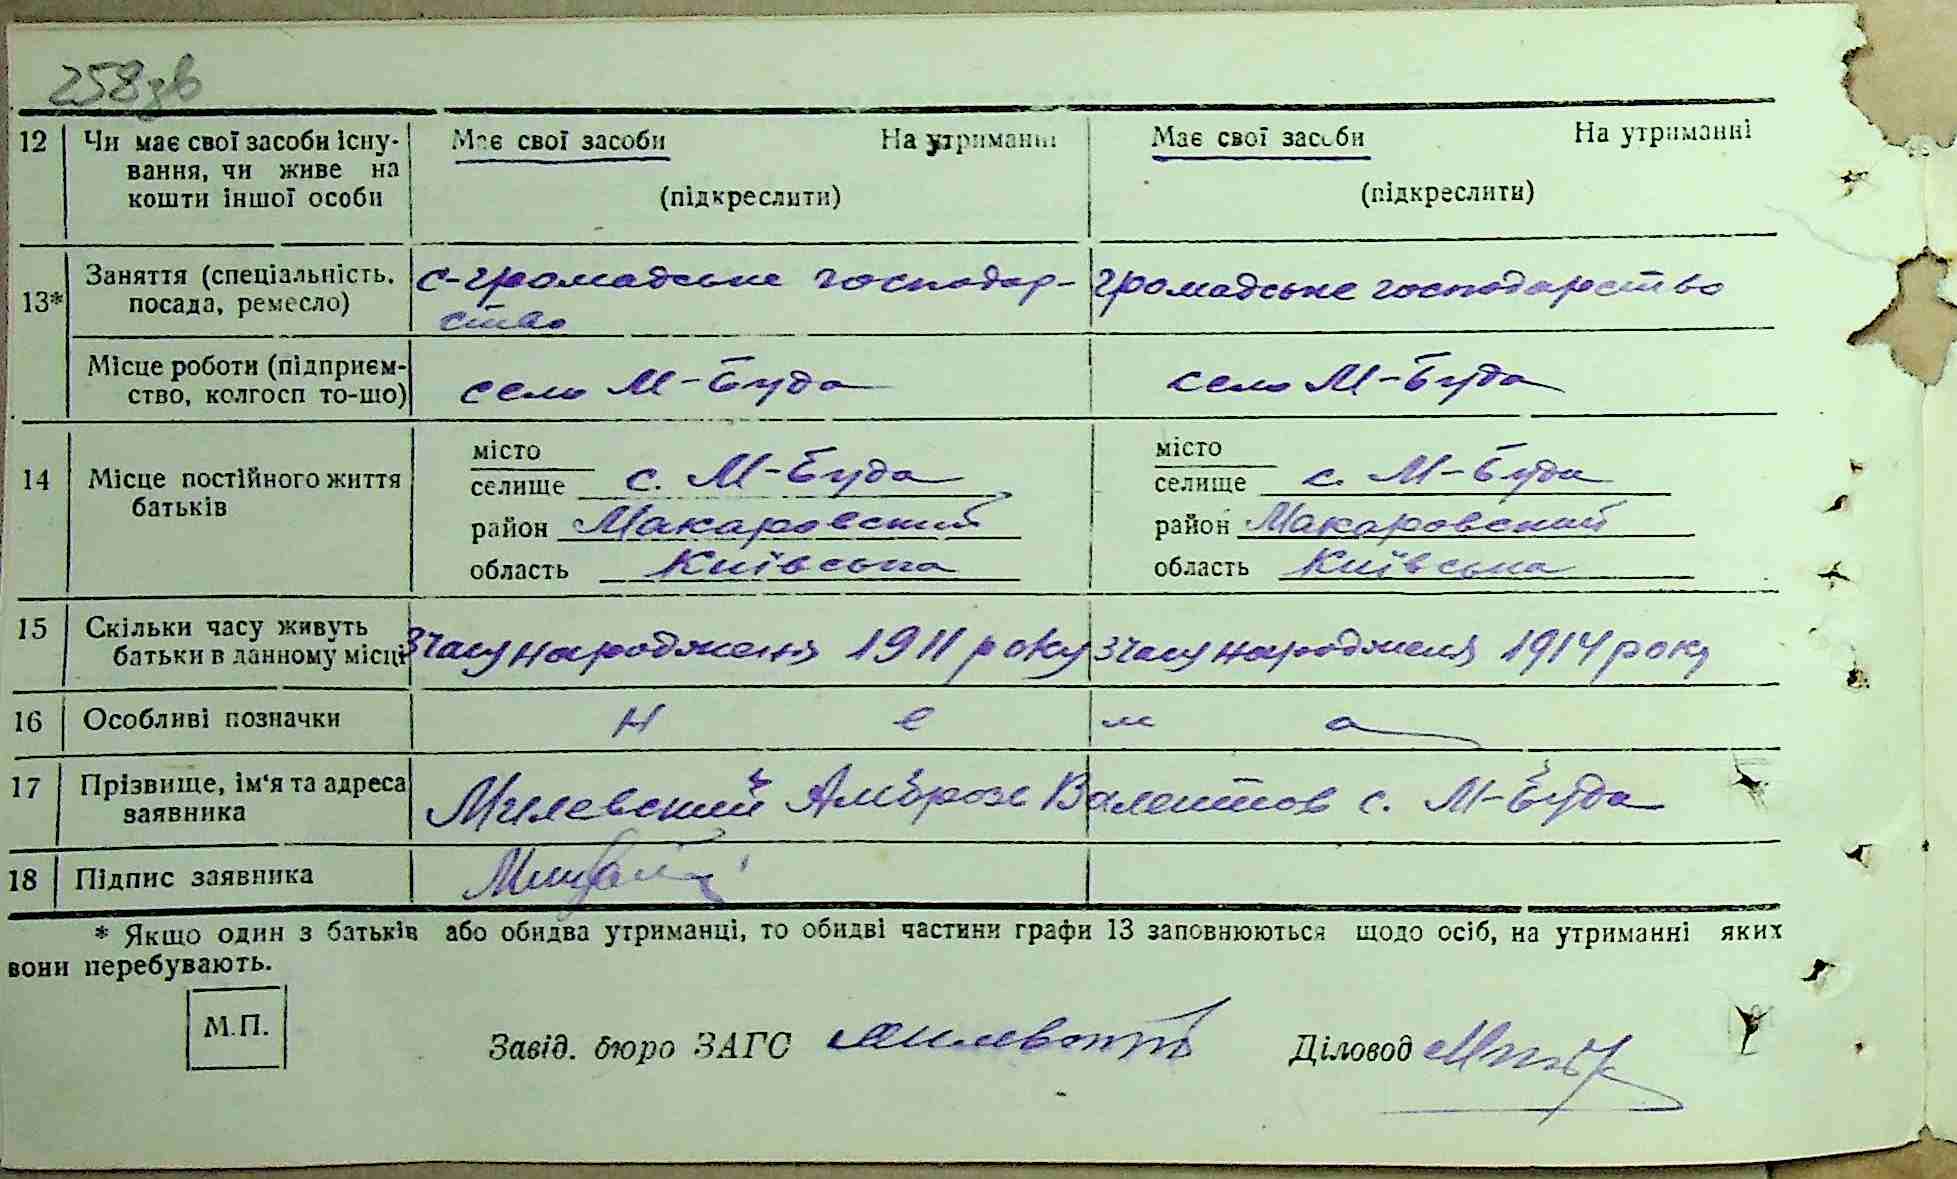 258зв
12 Чи має свої засоби існу- Має свої засоби На утриманні Має свої засоби На утриманні
вання, чи живе на
кошти іншої особи (підкреслити) (підкреслити)
13* Заняття (спеціальність, с-громадське господар- громадське господарство
посада, ремесло) ство
Місце роботи (підприєм- село М-Буда село М-Буда
ство, колгосп то-що)
14 Місце постійного життя місто місто
батьків селище с. М-Буда селище с. М-Буда
район Макаровский район Макаровский
область Київська область Київська
15 Скільки часу живуть
батьки в данному місці з часу народженя 1911 року з часу народженя 1914 року
16 Особливі позначки н е м а
17 Прізвище, ім'я та адреса Милевский Амброз Валентов с. М-Буда
заявника
18 Підпис заявника
* Якщо один з батьків або обидва утриманці, то обидві частини графи 13 заповнюються щодо осіб, на утриманні яких
вони перебувають.
М.П.
Завід. бюро ЗАГС Діловод